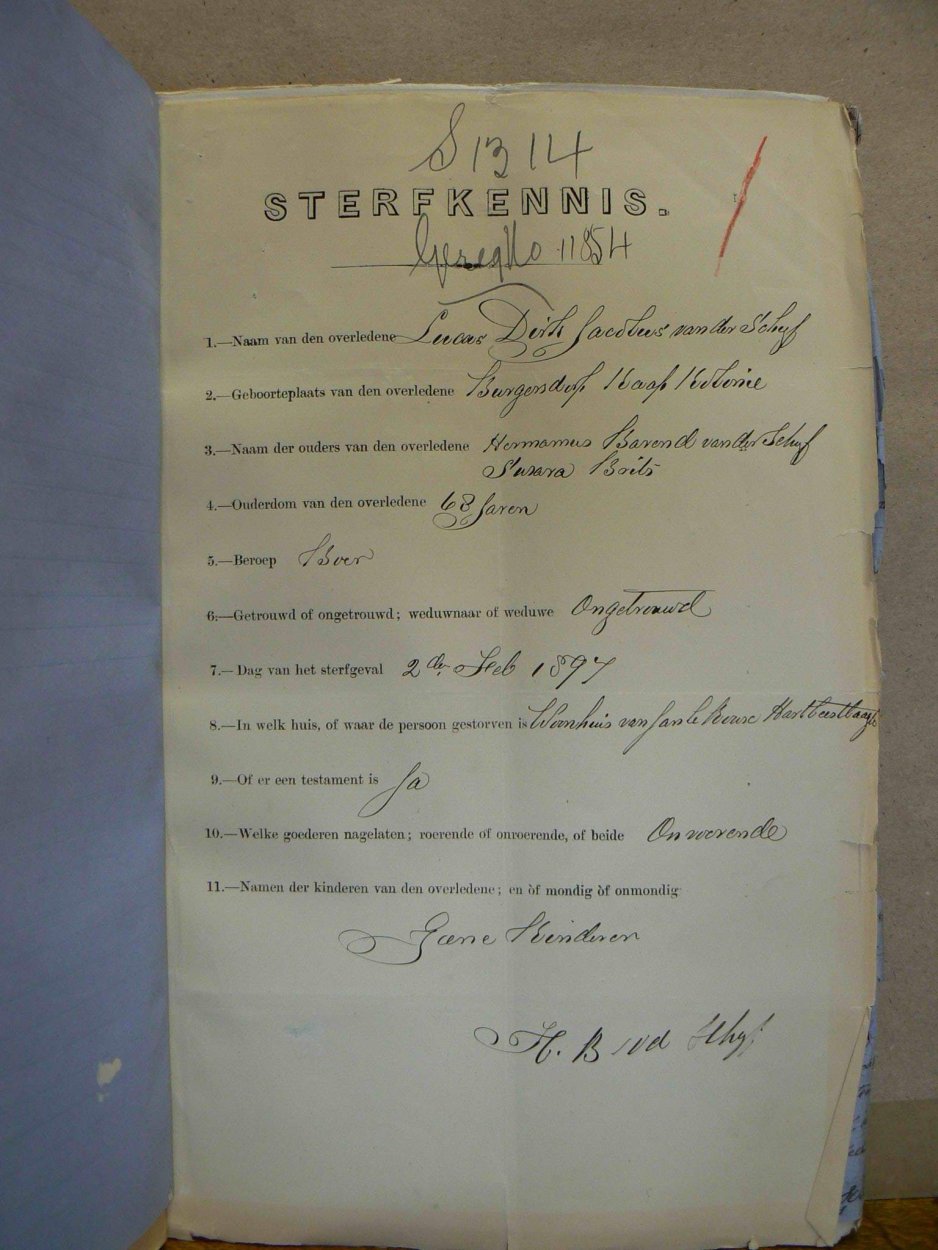 S 1314
STERFKENNIS.
11854
1.—Naam van den overledene Lucas Dirk Jacobus van der Schyf
2.—Geboorteplaats van den overledene Burgersdorp Kaap Kolonie
3.—Naam der ouders van den overledene Hermanus Barend van der Schyf
Susara Brits
4.—Ouderdom van den overledene 68 Jaren
5.—Beroep Boer
6.—Getrouwd of ongetrouwd; weduwnaar of weduwe Ongetrouwd
7.—Dag van het sterfgeval 2de Feb 1897
8.—In welk huis, of waar de persoon gestorven is Woonhuis van Jan
9.—Of er een testament is Ja
10.—Welke goederen nagelaten; roerende of onroerende, of beide Onroerende
11.—Namen der kinderen van den overledene; en òf mondig òf onmondig
Gene Kinderen
H. B vd Schyf